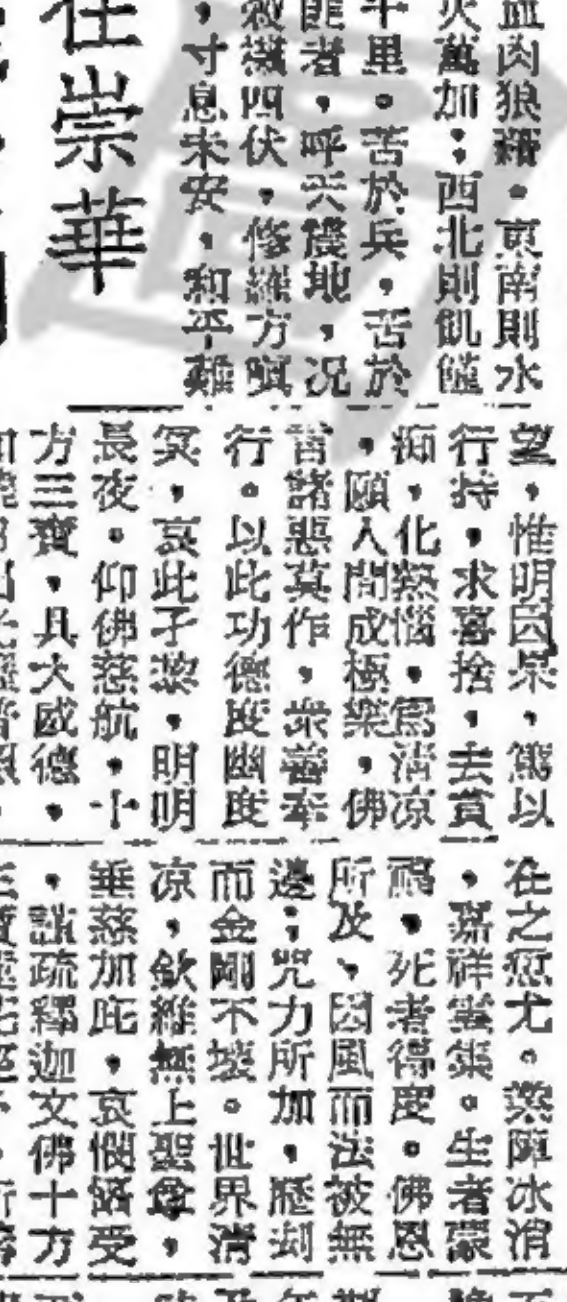 血肉狼藉。東南則水
火萬加;西北則飢饉
千里。苦於兵,苦於
匪者,呼天震地,况
殺機四伏,修羅方瞋
,寸息未安,和平難
在崇華
望,惟明因杲,篤以
行持,求喜捨,去貪
痴,化熱惱,為淸凉
,願人間成極樂,佛
言諸惡莫作,衆善奉
行。以此功德度幽度
冥,哀此孑黎,明明
長夜。仰佛慈航,十
方三寶,具大威德,
在之愆尤。業障冰消
,嘉祥雲集。生者蒙
福,死者得度。佛恩
所及、因風而法被無
邊;咒力所加,歷刦
而金剛不壞。世界清
凉,欽維無上聖尊,
垂慈加庇,哀憫攝受
,謹疏釋迦文佛十方